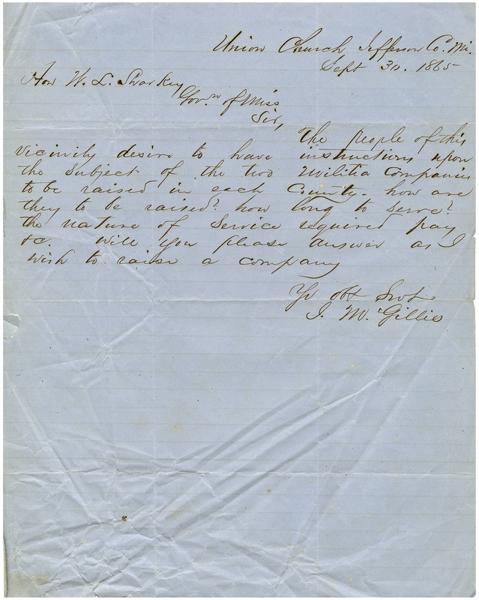 Union Church Jefferson Co. Mi.
Sept 3rd. 1865
Hon W. L. Sharkey
Govr. of Miss
Sir,
The people of this
vicinity desire to have instructions upon
the subject of the two Militia Companies
to be raised in each County. how are
they to be raised? how long to serve?
the nature of Service required pay
&c. Will you please answer as I
wish to raise a company
Yr obt Svt
J. M. Gillis